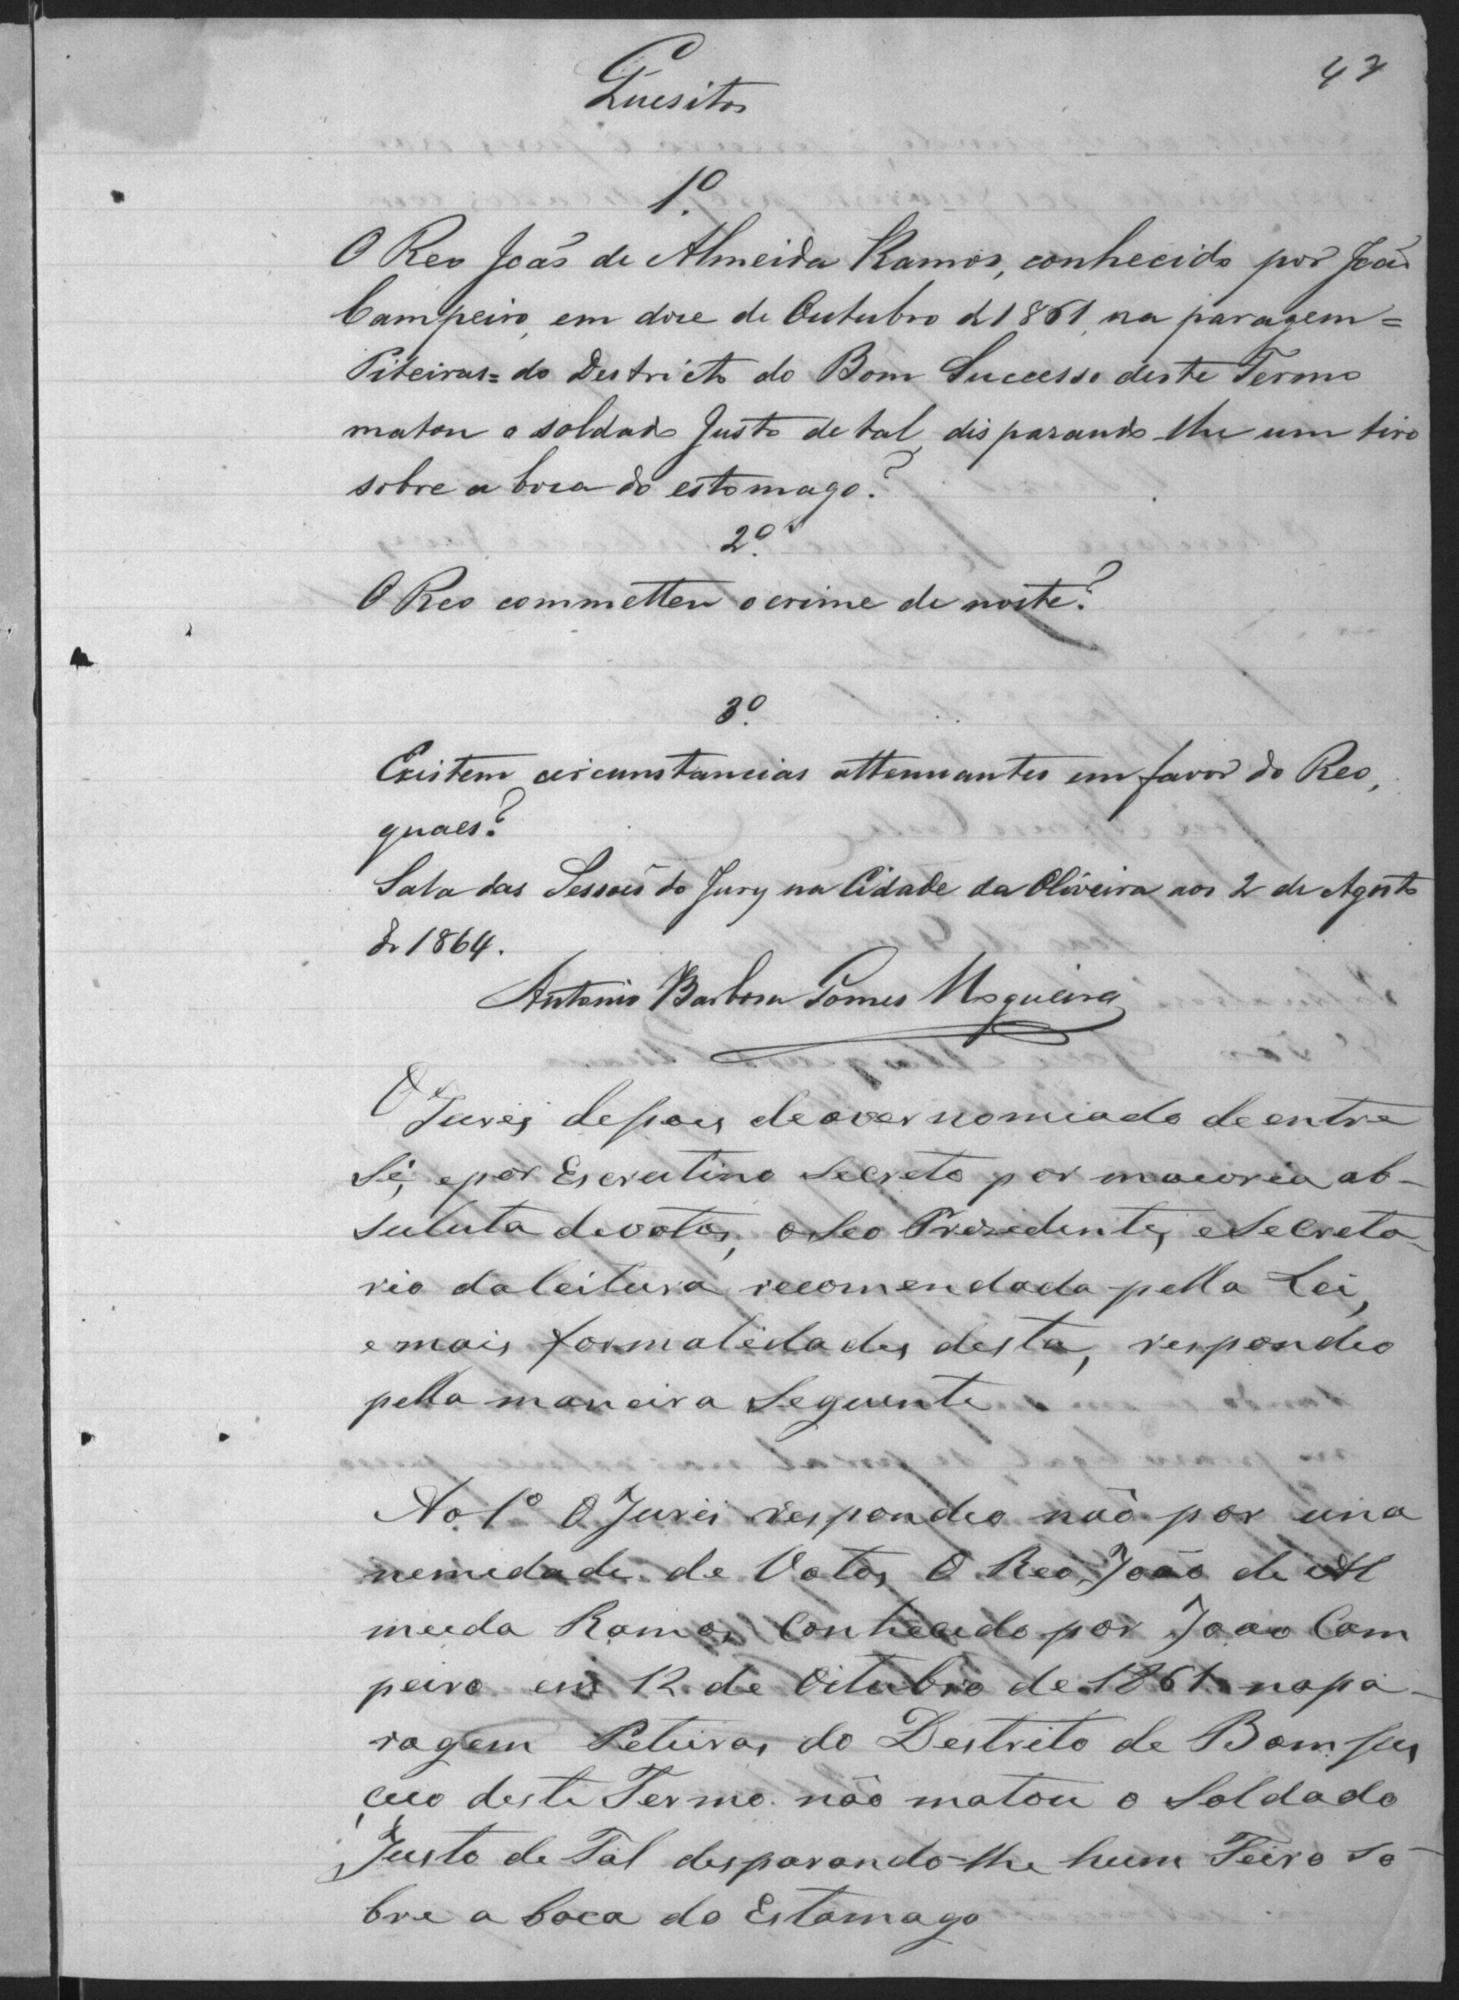 47
Quesitos
1º
O Reo João de Almeida Ramos, conhecido por João
Campeiro, em doze de Outubro d 1861, na paragem=
Piteiras=do Destricto do Bom Successo deste Termo
matou o soldado Justo de tal, disparando-lhe um tiro
sobre a boca do estomago?
2º
O Reo commetteu o crime de noite?
3º
Existem circunstancias attenuantes em favor do Reo,
quaes?
Sala das Sessões do Jury na Cidade da Oliveira aos 2 de Agosto
de 1864.
Antonio Barbosa Gomes Nogueira
O Jurei depois de aver nomiado de entre
Si, e por Escrutino secreto por maioria ab-
suluta de votos, o seo Prezidente, e Secreta-
rio da leitura recomendada pella Lei,
e mais formalidades desta, respondeo
pella maneira Seguente
Ao 1º O Jurei respondeo não por una
nemedade de Votos O Reo João de Al
meida Ramos Conhecido por João Cam
peiro em 12 de Oitubro de 1861 na pa-
ragem Peteiras do Destrito de Bom sus
ceço deste Termo não matou o Soldado
Justo de Tal desparando-lhe hum Teiro so-
bre a boca do Estamago